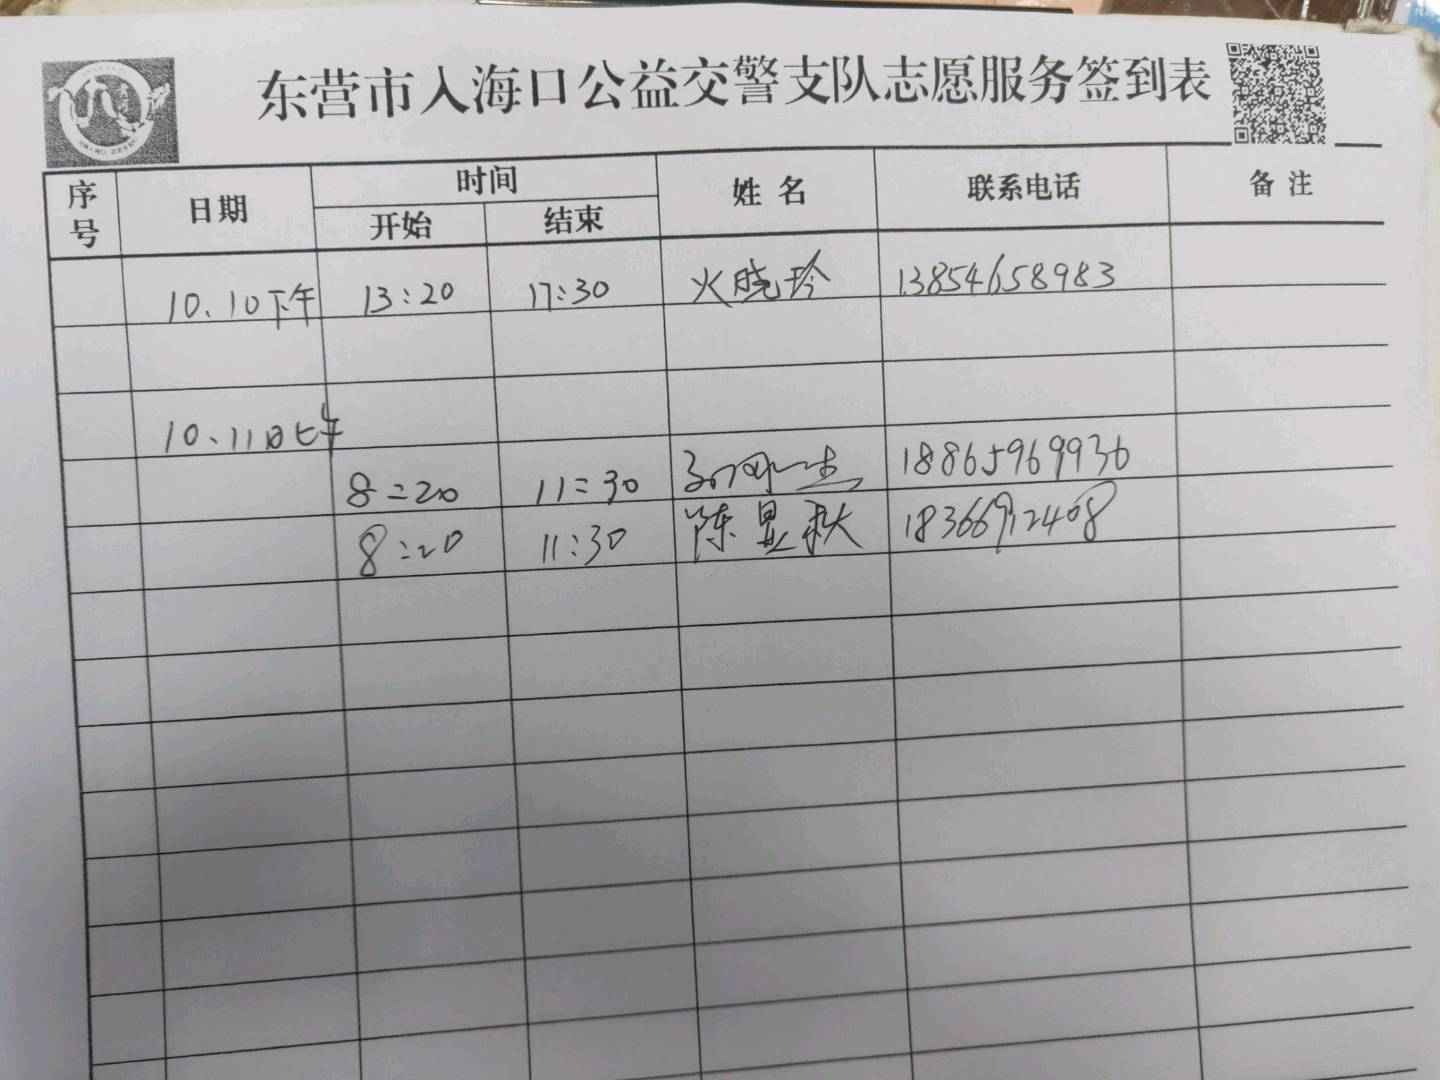 东营市入海口公益交警支队志愿服务签到表
序号 日期 时间 姓名 联系电话 备注
开始 结束
10、10下午 13:20 17:30 火晓玲 13854658983
10、11日上午
8:20 11:30 18865969936
8:20 11:30 陈显秋 18366912408